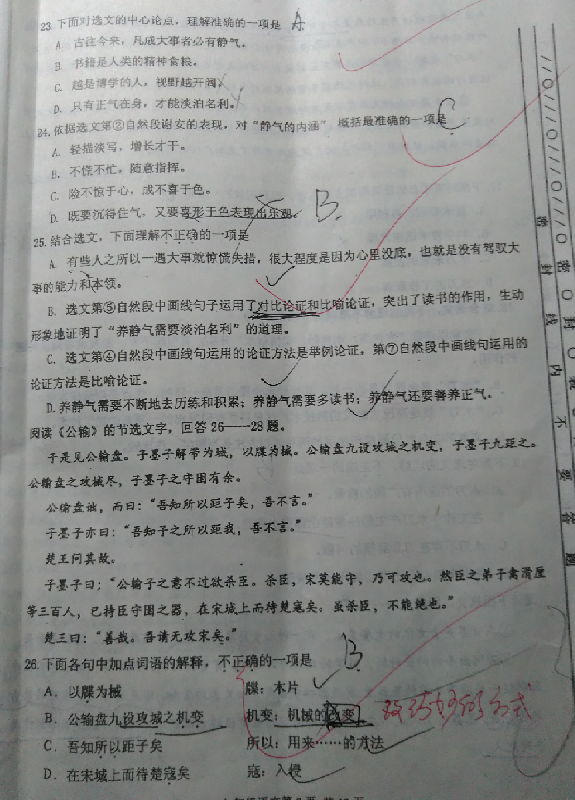 23.下面对选文的中心论点，理解准确的一项是 A
A. 古往今来，凡成大事者必有静气。
B. 书籍是人类的精神食粮。
C. 越是博学的人，视野越开阔。
D. 只有正气在身，才能淡泊名利。
24.依据选文第③自然段谢安的表现，对“静气的内�”概括最准确的一项是 C
A. 轻描淡写，增长才干。
B. 不慌不忙，随意指挥。
C. 险不惊于心，成不喜于色。
D. 既要沉得住气，又要喜形于色表现出乐观。
25.结合选文，下面理解不正确的一项是 B.
A. 有些人之所以一遇大事就惊慌失措，很大程度是因为心里没底，也就是没有驾驭大
事的能力和本领。
B. 选文第⑤自然段中画线句子运用了对比论证和比喻论证，突出了读书的作用，生动
形象地证明了“养静气需要淡泊名利”的道理。
C. 选文第④自然段中画线句运用的论证方法是举例论证，第⑦自然段中画线句运用的
论证方法是比喻论证。
D.养静气需要不断地去历练和积累；养静气需要多读书；养静气还要善养正气。
阅读《公输》的节选文字，回答26——28题。
于是见公输盘。子墨子解带为城，以牒为械。公输盘九设攻城之机变，子墨子九距之。
公输盘之攻械尽，子墨子之守圉有余。
公输盘诎，而曰：“吾知所以距子矣，吾不言。”
子墨子亦曰：“吾知子之所以距我，吾不言。”
楚王问其故。
子墨子曰：“公输子之意不过欲杀臣。杀臣，宋莫能守，乃可攻也。然臣之弟子禽滑厘
等三百人，已持臣守圉之器，在宋城上而待楚寇矣。虽杀臣，不能绝也。”
楚王曰：“善哉。吾请无攻宋矣。”
26.下面各句中加点词语的解释，不正确的一项是 B.
A. 以牒为械 牒：木片
B. 公输盘九设攻城之机变 机变：机械的改变
C. 吾知所以距子矣 所以：用来……的方法
D. 在宋城上而待楚寇矣 寇：入侵
密 封 线 内 不 要 答 题